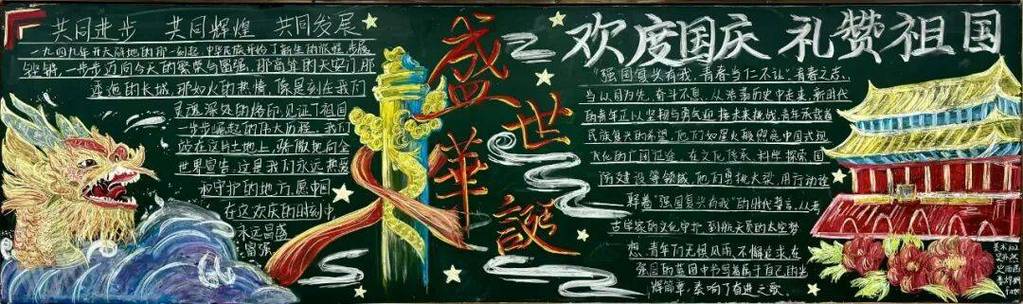 共同进步 共同辉煌 共同发展
一九四九年开天辟地的那一刻起,中华民族开启了新生的旅程,步履
铿锵,一步步迈向今天的繁荣与富强,那高耸的天安门,那
遥远的长城,那如火的热情,都是刻在我们
灵魂深处的烙印,见证了祖国
一步步崛起的伟大历程。我们
站在这片土地上,骄傲地向全
世界宣告,这是我们永远热爱
和守护的地方,愿中国
在这欢庆的时刻中
永远昌盛
富强
盛世华诞
欢度国庆 礼赞祖国
"强国复兴有我,青春当仁不让",青春之志,
当以国为先,奋斗不息,从浩荡历史中走来,新时代
的青年正以坚韧与勇气迎接未来挑战,青年承载着
民族复兴的希望,他们如星火般照亮中国式现
代化的广阔征途,在文化传承,科学探索,国
防建设等领域,他们勇挑大梁,用行动诠
释着"强国复兴有我"的时代誓言,从考
古学家的文化守护,到航天员的太空梦
想,青年们无惧风雨,不懈追求,在
强国的蓝图中书写着属于自己的光
辉篇章,奏响了奋进之歌